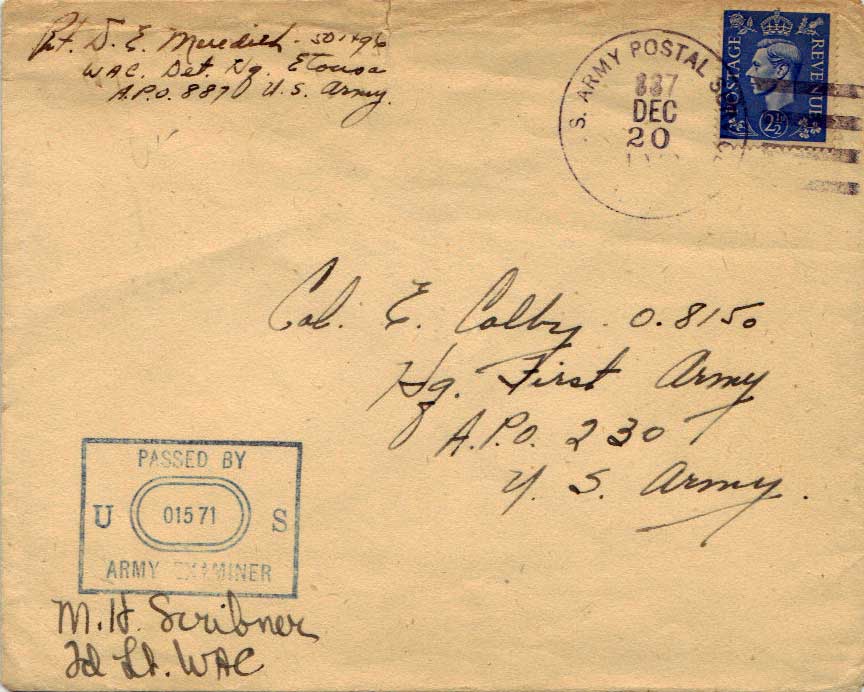 Pvt. D. E. Meredith - 501496
WAC. Det. Hq. Etousa
A.P.O. 887 U.S. Army.
S. ARMY POSTAL
887
DEC
20
POSTAGE
REVENUE
2½D
Col. E. Colby. O.8150
Hq. First Army
A.P.O. 230
U. S. Army.
PASSED BY
U 01571 S
ARMY EXAMINER
M. H. Scribner
2d Lt. WAC